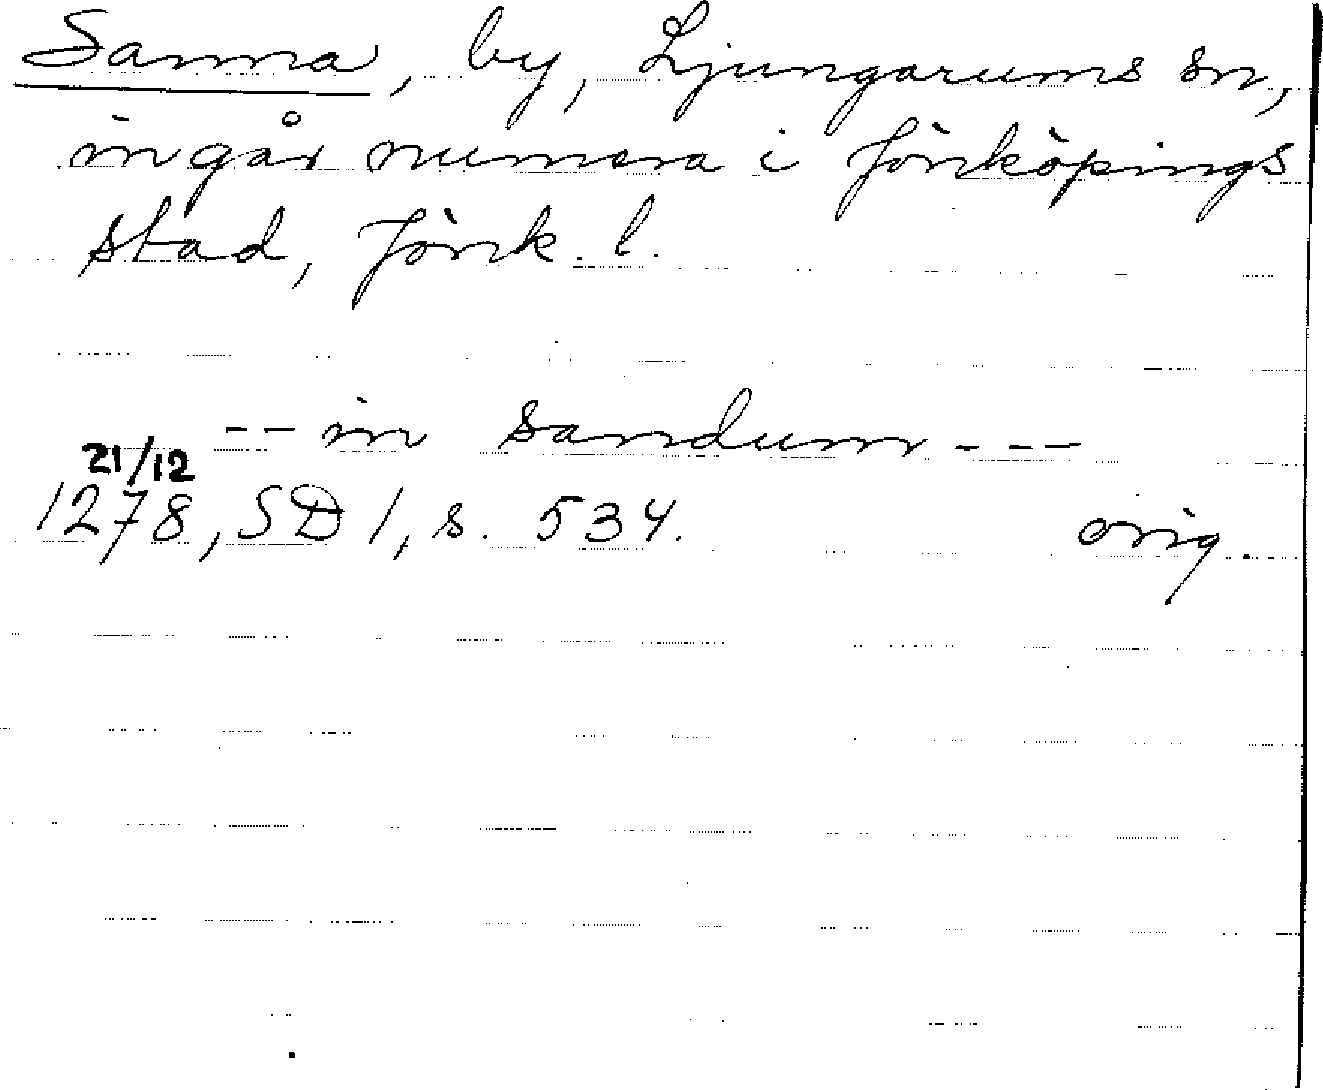 Sanna, by, Ljungarums sn,
ingår numera i Jönköpings
stad, Jönk. l.
-- in sandum ---
21/12
1278, SD 1, s. 534. orig.